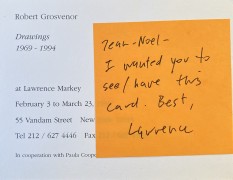 Robert Grosvenor
Drawings
1969 - 1994
at Lawrence Markey
February 3 to March 23,
55 Vandam Street New
Tel 212 / 627 4446 Fax
In cooperation with Paula Coope
Jean-Noel-
I wanted you to
see/have this
card. Best,
Lawrence